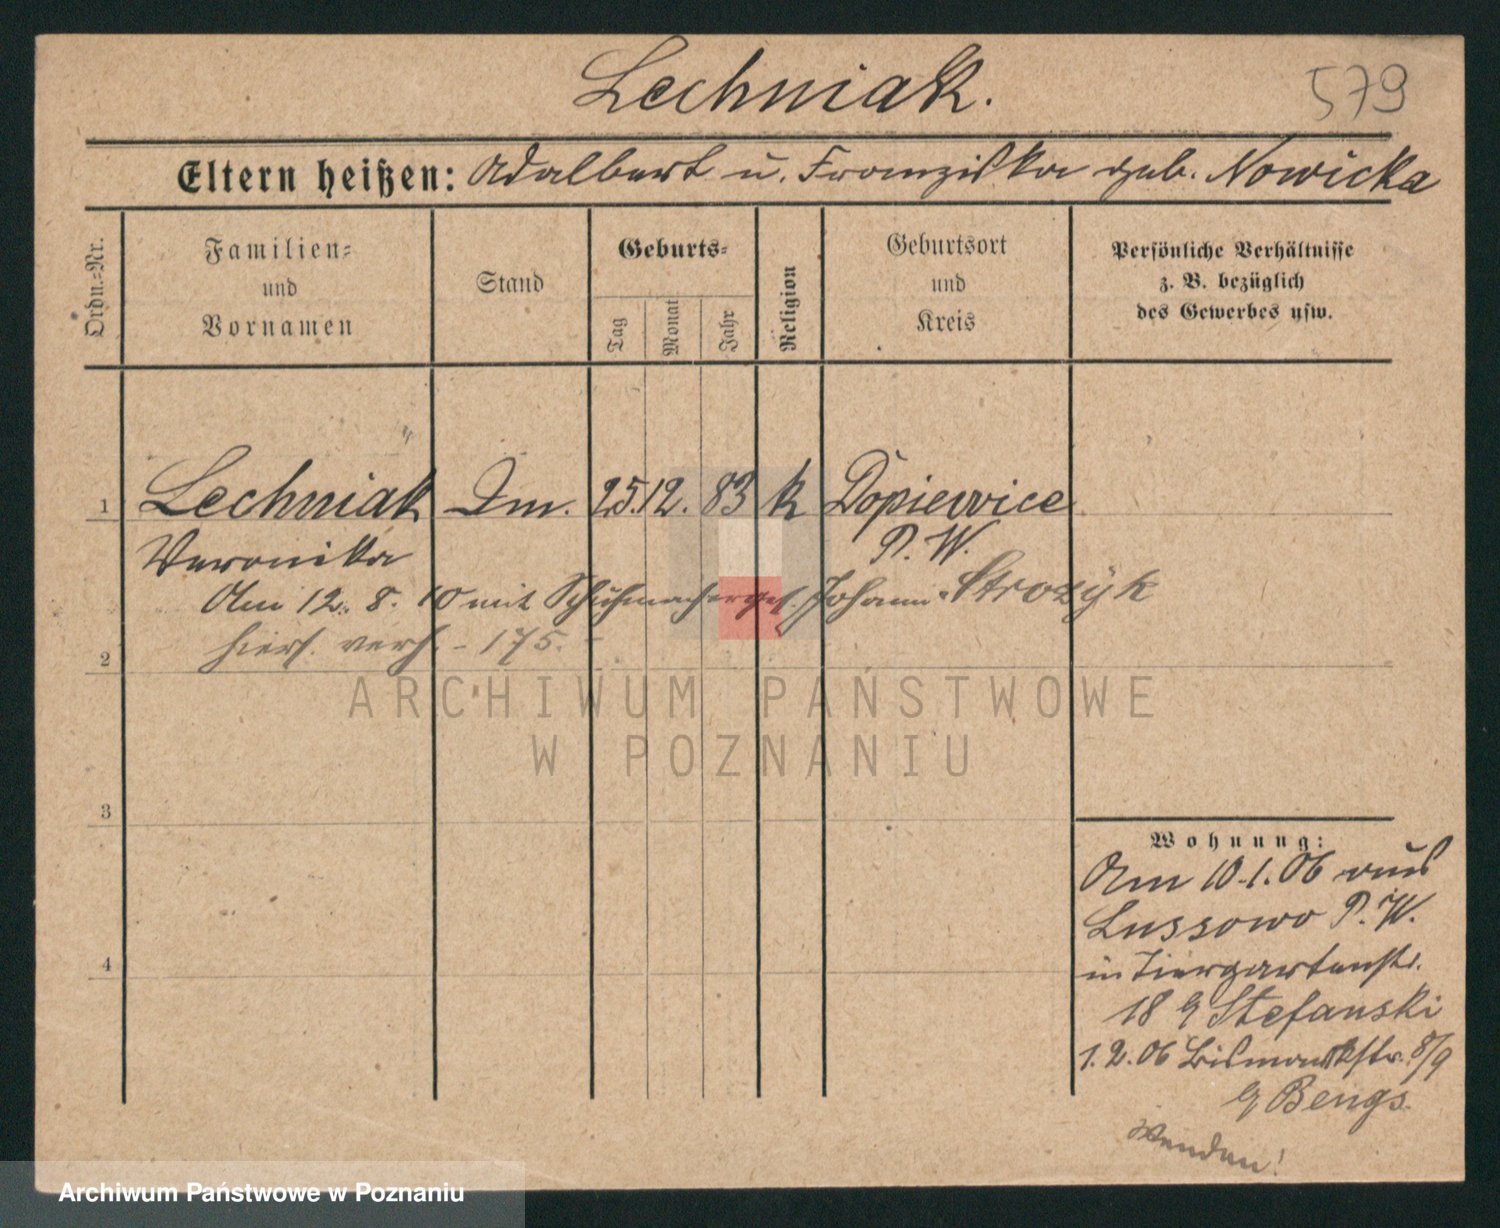 Lechniak.
579
Eltern heißen: Adalbert u. Franziska geb. Nowicka
Ordn.=Nr.
Familien=
und
Vornamen
Stand
Geburts=
Tag
Monat
Jahr
Religion
Geburtsort
und
Kreis
Persönliche Verhältnisse
z. B. bezüglich
des Gewerbes usw.
1 Lechniak Dm. 25. 12. 83 k Dopiewice
Veronika P. W.
Am 12. 8. 10 mit Schuhmacherges. Johann Strozÿk
hiers. verh. - 175. -
2
3
4
Wohnung:
Am 10.1.06 aus
Lussowo P. W.
in Tiergartenstr.
18 b/ Stefanski
1.2.06 Bismarkstr. 8/9
b/ Bengs.
Wenden!
ARCHIWUM PAŃSTWOWE
W POZNANIU
Archiwum Państwowe w Poznaniu